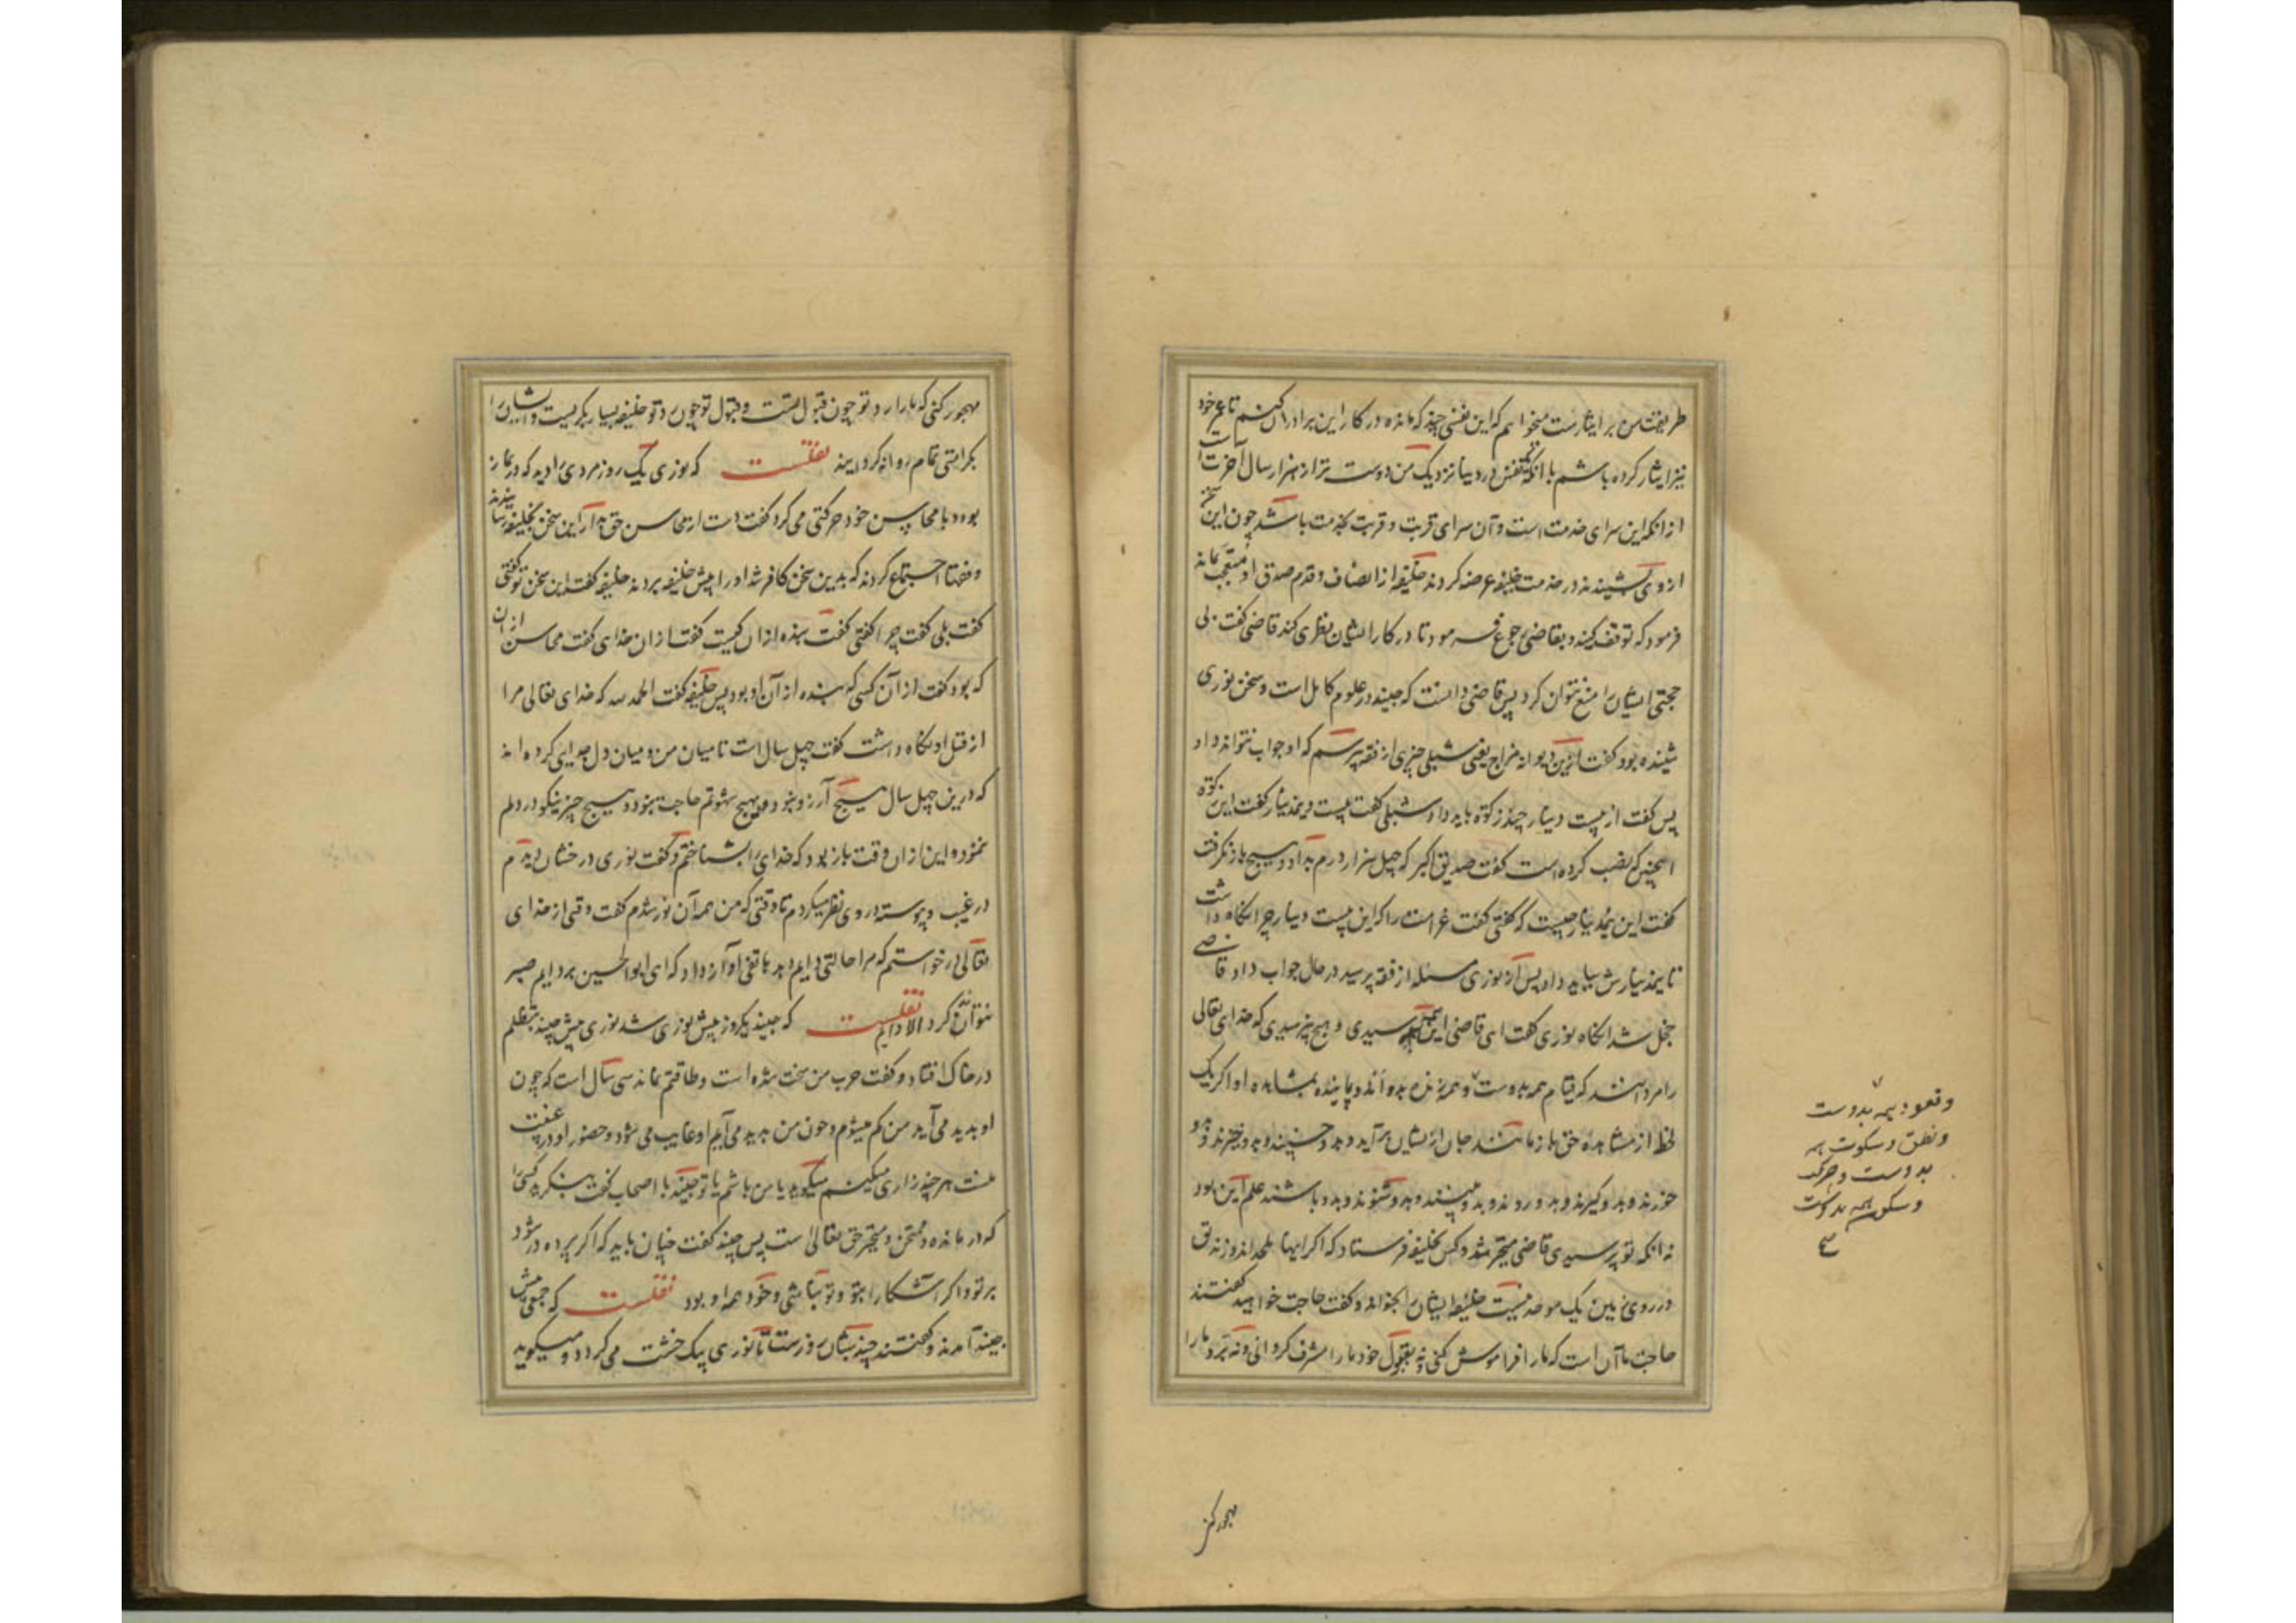 طریقت من بر ایثارست میخواهم که این نفسی چند که مانده در کار این برادران کنم تا عمر خود
نیز ایثار کرده باشم با آنکه یکنفس در دنیا نزدیک من دوست تر از هزار سال آخرت است
از انکه این سرای خدمت است و آن سرای قربت و قربت بخدمت باشد چون این سخن
از وی بشنیدند در خدمت خلیفه عرضه کردند خلیفه از انصاف و قدم صدق او متعجب بماند
فرمود که توقف کنید و بقاضی رجوع فرمود تا در کار ایشان نظری کند قاضی گفت بی
حجتی ایشان را منع نتوان کرد پس قاضی دانست که جنید در علوم کامل است و سخن نوری
شنیده بود گفت ازین دیوانه مزاج یعنی شبلی چیزی از فقه پرسم که او جواب نتواند داد
پس گفت از بیست دینار چند زکوة باید داد شبلی گفت بیست و نیم دینار گفت این زکوة
اینچنین که نصب کرده است گفت صدیق اکبر که چهل هزار درم بداد و هیچ باز نگرفت
گفت این نیم دینار چیست که گفتی گفت غرامت را که این بیست دینار چرا نگاه داشت
تا نیم دینارش بباید داد پس از نوری مسئله از فقه پرسید در حال جواب داد قاضی
خجل شد انگاه نوری گفت ای قاضی این همه پرسیدی و هیچ نپرسیدی که خدای تعالی
را مردانند که قیام همه بدوست و همه زنده بدو اند و پاینده بمشاهده او اگر یک
لحظه از مشاهده حق باز مانند جان از یشان برآید و بدو خسپند و بدو خیزند و بدو
خورند و بدو گیرند و بدو روند و بدو بینند و بدو شنوند و بدو باشند علم این بود
نه انکه تو پرسیدی قاضی متحیر شد و کس بخلیفه فرستاد که اگر اینها ملحد اند و زندیق
در روی زمین یک موحد نیست خلیفه ایشان را بخواند و گفت حاجت خواهید گفتند
حاجت ما آن است که ما را فراموش کنی و نه بقبول خود ما را مشرف گردانی و نه برد ما را
وقعود همه بدوست
ونطق و سکوت همه
بدوست و حرکت
و سکون همه بدوست
مهجور کنی
مهجور کنی که ما را رد تو چون قبول تست و قبول تو چون رد تو خلیفه بسیار بگریست و ایشان را
بکرامتی تمام روانه گردانید نقلست که نوری یک روز مردی را دید که در نماز
بود و با محاسن خود حرکتی می کرد گفت دست از محاسن حق بدار این سخن بخلیفه رسانیدند
و فقها اجتماع کردند که بدین سخن کافر شد او را پیش خلیفه بردند خلیفه گفت این سخن تو گفتی
گفت بلی گفت چرا گفتی گفت بنده از ان کیست گفت از ان خدای گفت محاسن از ان
که بود گفت از آن کسی که بنده از آن او بود پس خلیفه گفت الحمد لله که خدای تعالی مرا
از قتل او نگاه داشت گفت چهل سال است تا میان من و میان دل جدایی کرده اند
که درین چهل سال هیچ آرزو نبود و بهیچ شهوتم حاجت نبود و هیچ چیز نیکو در دلم
ننمود و این از ان وقت باز بود که خدای را بشناختم و گفت نوری درخشان دیدم
در غیب و پیوسته در وی نظر میکردم تا وقتی که من همه آن نور شدم گفت وقتی از خدای
تعالی درخواستم که مرا حالتی دایم دهد هاتفی آواز داد که ای ابوالحسین بر دایم صبر
نتواند کرد الا دائم نقلست که جنید یکروز پیش نوری شد نوری پیش جنید بتظلم
در خاک افتاد و گفت حرب من سخت شده است و طاقتم نماند سی سال است که چون
او پدید می آید من گم میشوم و چون من پدید می آیم او غایب می شود و حضور او در غیبت
منست هر چند زاری میکنم میگوید یا من باشم یا تو جنید با اصحاب گفت بنگرید کسی را
که در مانده و ممتحن و متحیر حق تعالی است پس جنید گفت چنان باید که اگر پرده در شود
بر تو و اگر آشکارا بتو و تو تباشی و خود همه او بود نقلست که جمعی پیش
جنید آمدند و گفتند چند شبان روزست تا نوری بیک خشت می گردد و میگوید